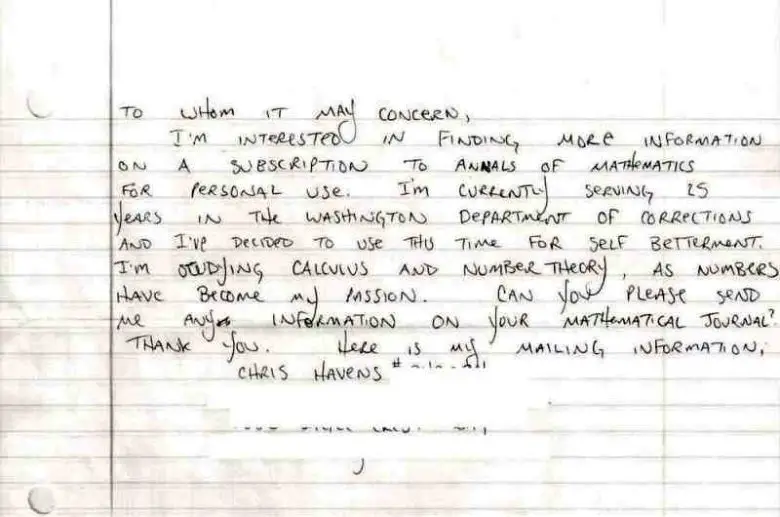 TO WHOM IT MAY CONCERN,
I'M INTERESTED IN FINDING MORE INFORMATION
ON A SUBSCRIPTION TO ANNALS OF MATHEMATICS
FOR PERSONAL USE. I'M CURRENTLY SERVING 25
YEARS IN THE WASHINGTON DEPARTMENT OF CORRECTIONS
AND I'VE DECIDED TO USE THIS TIME FOR SELF BETTERMENT.
I'M STUDYING CALCULUS AND NUMBER THEORY, AS NUMBERS
HAVE BECOME MY PASSION. CAN YOU PLEASE SEND
ME ANY INFORMATION ON YOUR MATHEMATICAL JOURNAL?
THANK YOU. HERE IS MY MAILING INFORMATION,
CHRIS HAVENS #